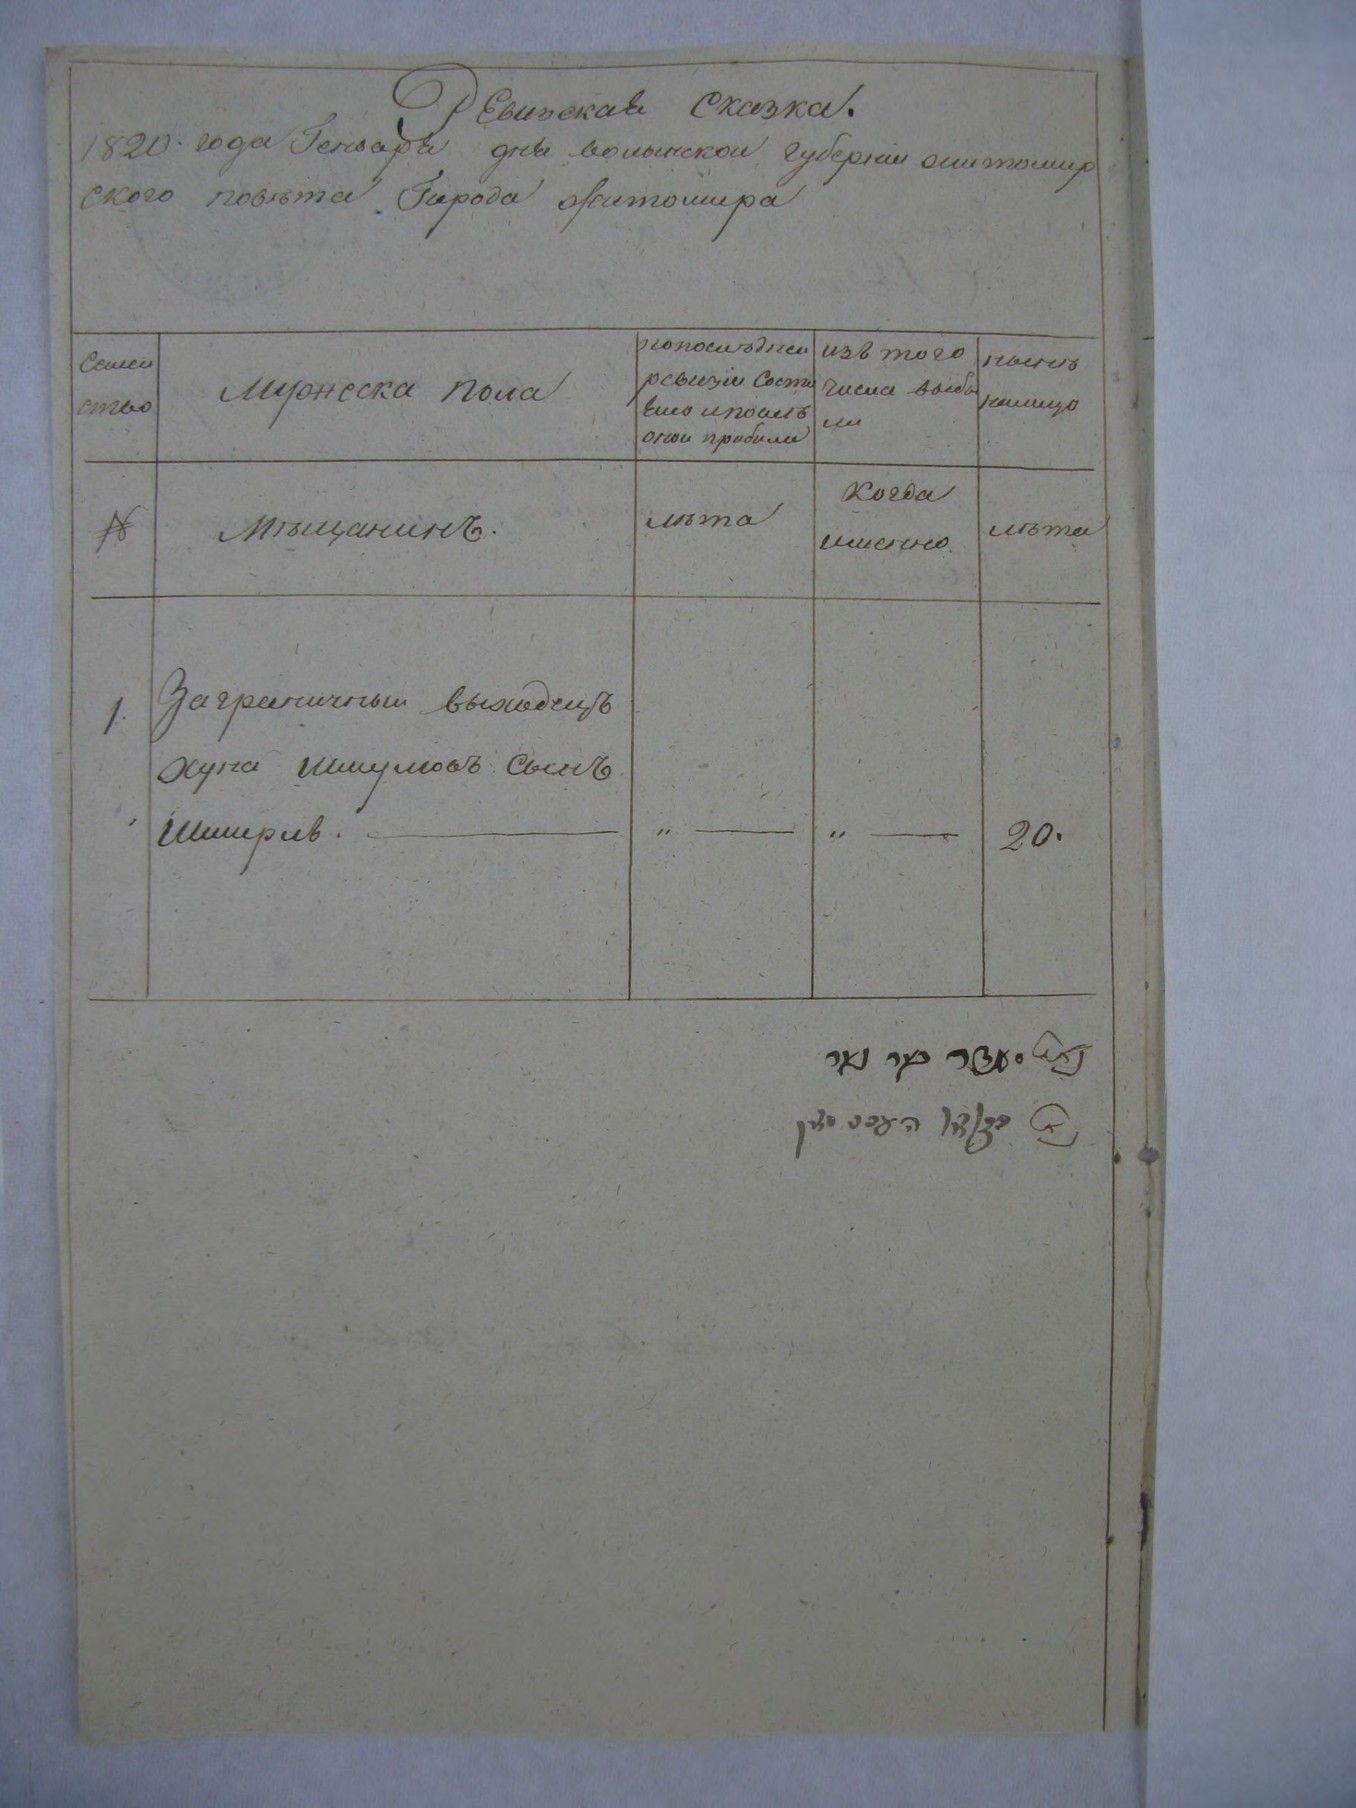 Ревизская Сказка.
1820. года Генваря дня волынской губернии житомир
ского повѣта Города житомира
Семей
ство
Мужеска пола
попослѣдней
ревизіи Состо
яло и послѣ
оной прибыли
изъ того
числа выбы
ли
нынѣ
налицо
№
Мѣщанинъ.
лѣта
Когда
имянно.
лѣта
1.
Заграничный выходецъ
хуна Шмулювъ Сынъ
" — " — 20.